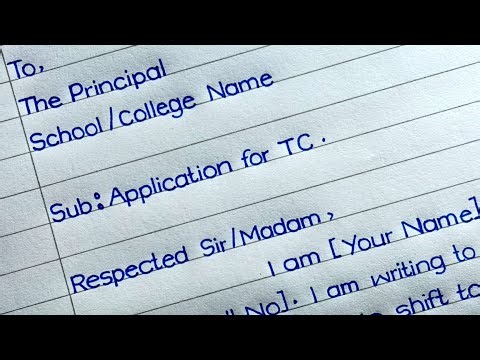 To,
The Principal
School/College Name
Sub: Application for TC.
Respected Sir/Madam,
I am [Your Name]
No]. I am writing to
shift to